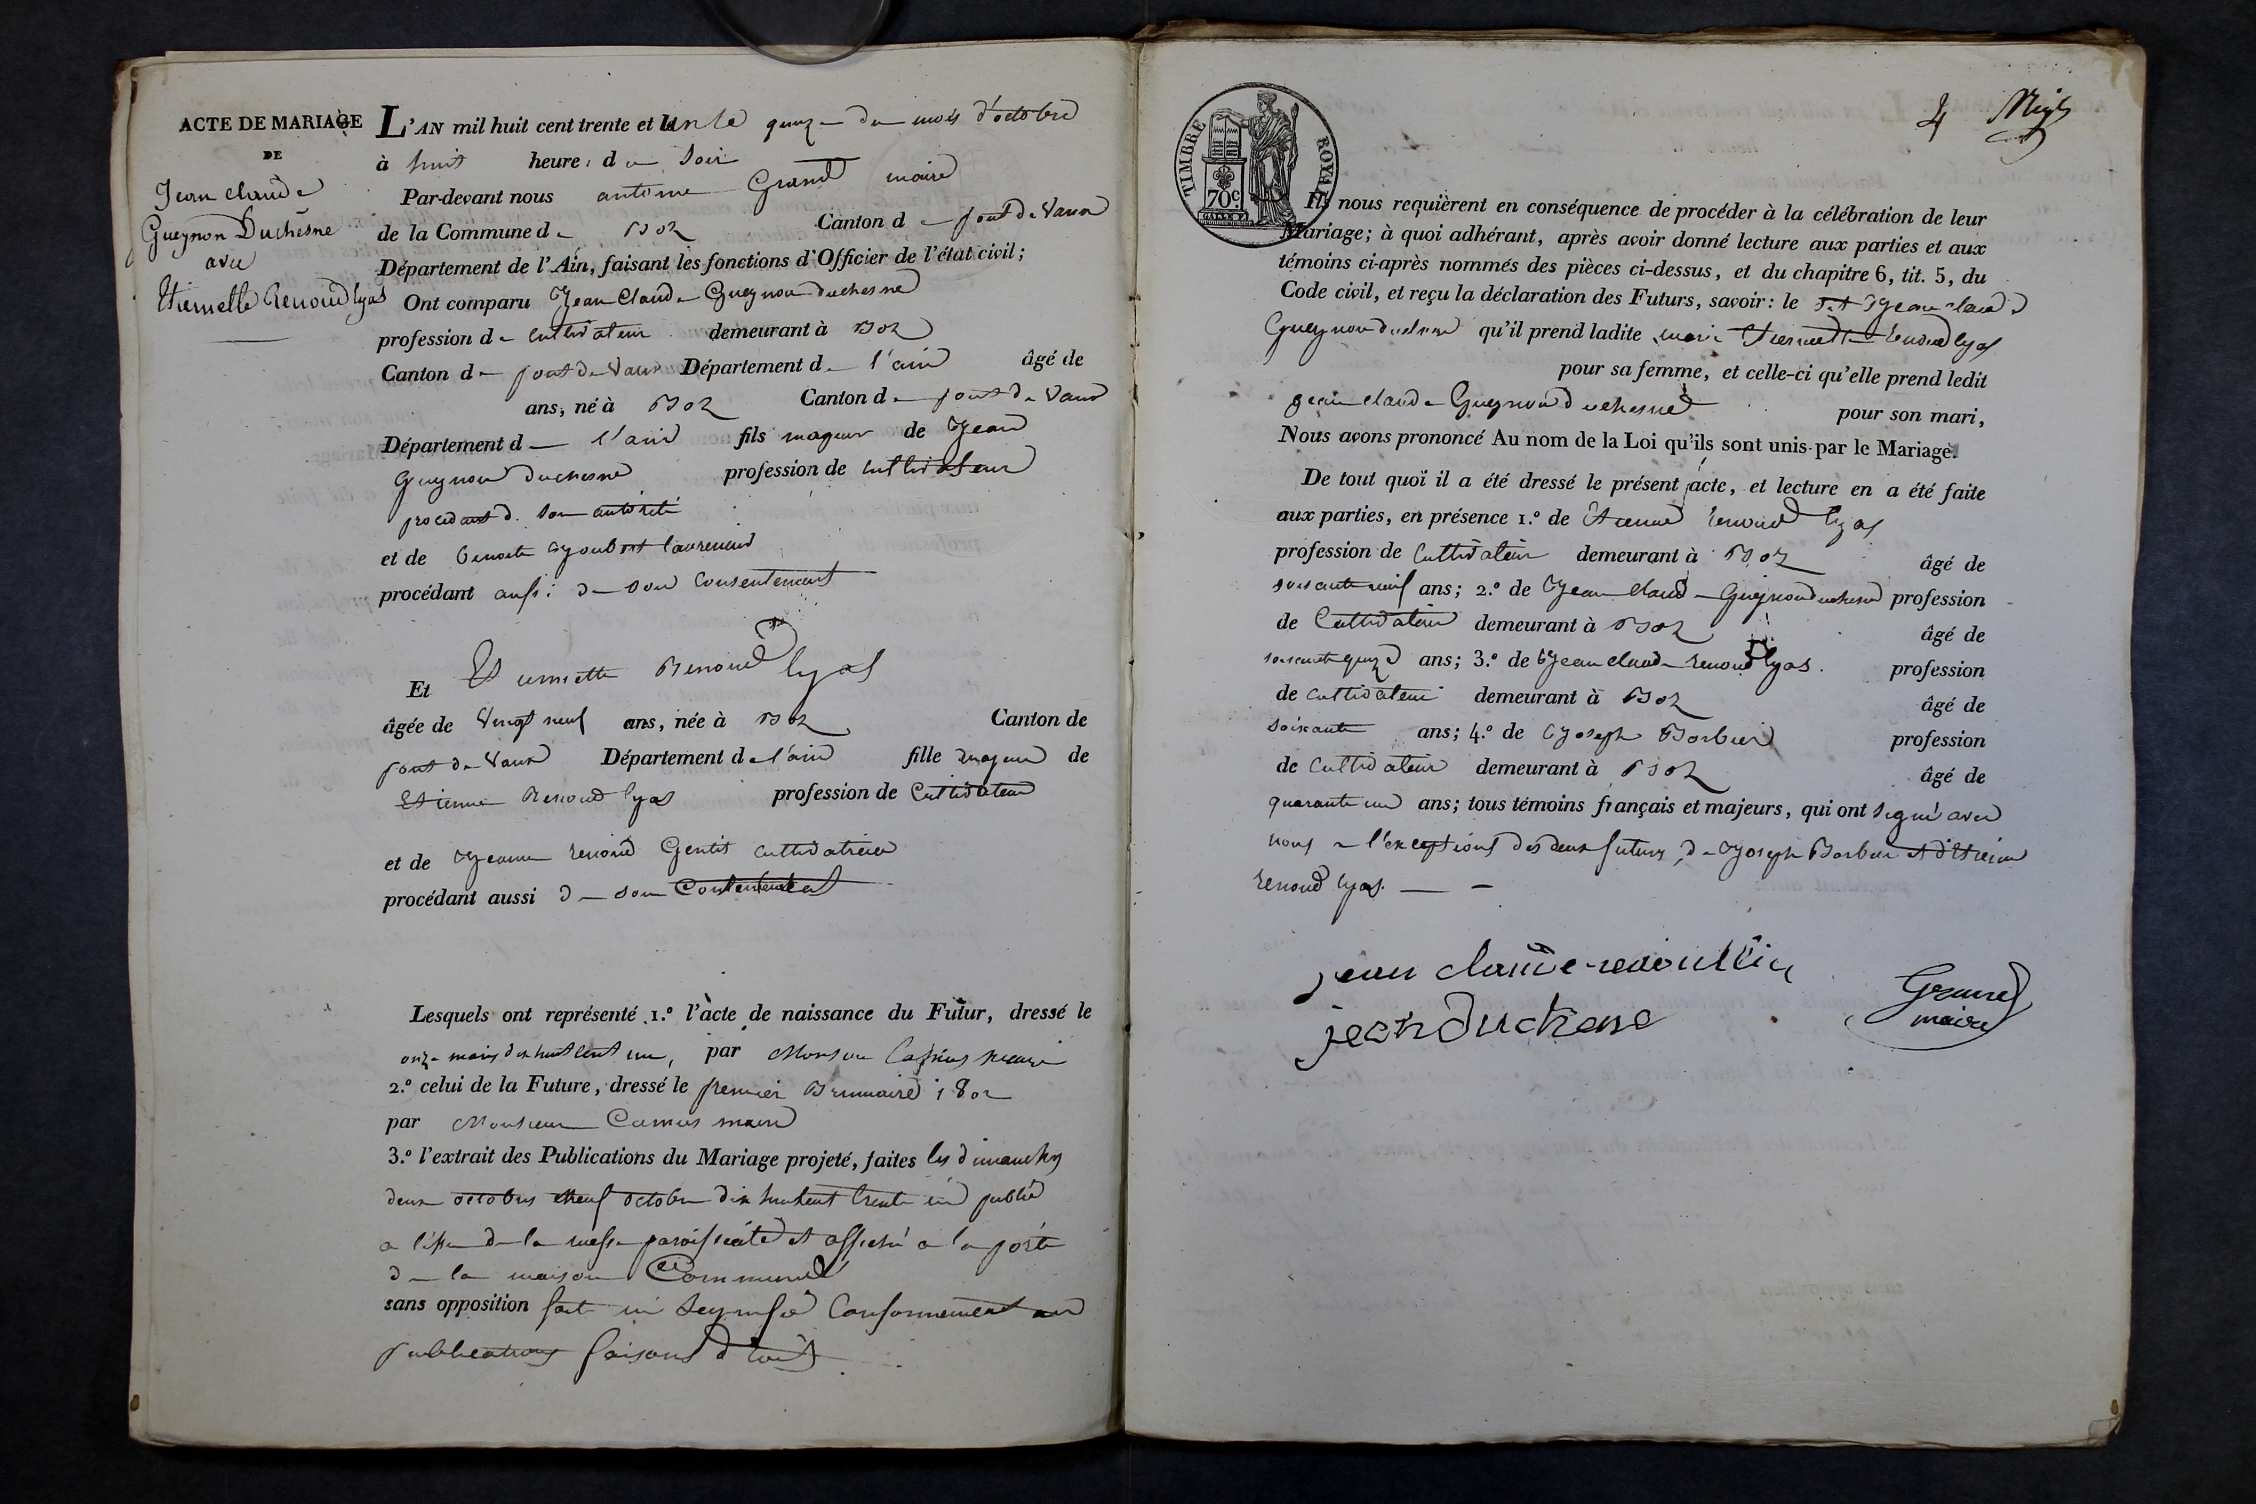 ACTE DE MARIAGE
DE
Jean Claude
Gueynon Duchesne
avec
Etiennette Renoud lyas
L'AN mil huit cent trente et un le quinze du mois d'octobre
à huit heures du Soir
Par-devant nous antoine Grand maire
de la Commune de Boz Canton de pont de Vaux
Département de l'Ain, faisant les fonctions d'Officier de l'état civil;
Ont comparu Jean Claude Gueynon duchesne
profession de cultivateur demeurant à Boz
Canton de pont de Vaux Département de l'ain âgé de
ans, né à Boz Canton de pont de Vaux
Département de l'ain fils majeur de Jean
Gueynon duchesne profession de cultivateur
procédant de son autorité
et de Benoite Joubert
procédant aussi de son Consentement
Et Etiennette Renoud lyas
âgée de Vingt neuf ans, née à Boz Canton de
pont de Vaux Département de l'ain fille majeure de
Etienne Renoud lyas profession de Cultivateur
et de Jeanne renoud Gentit cultivatrice
procédant aussi de son Consentement
Lesquels ont représenté 1.º l'acte de naissance du Futur, dressé le
onze mars dix huit cent un, par Monsieur Camus maire
2.º celui de la Future, dressé le premier Brumaire 1802
par Monsieur Camus maire
3.º l'extrait des Publications du Mariage projeté, faites les dimanches
deux octobre et neuf octobre dix huit cent trente un publié
a l'issue de la messe paroissiale et affiché a la porte
de la maison Commune
sans opposition Conformement aux
publications
TIMBRE ROYAL
70c.
4
Ils nous requièrent en conséquence de procéder à la célébration de leur
Mariage; à quoi adhérant, après avoir donné lecture aux parties et aux
témoins ci-après nommés des pièces ci-dessus, et du chapitre 6, tit. 5, du
Code civil, et reçu la déclaration des Futurs, savoir: le dit Jean claude
Gueynon duchesne qu'il prend ladite Etiennette renoud lyas
pour sa femme, et celle-ci qu'elle prend ledit
jean claude Gueynon duchesne pour son mari,
Nous avons prononcé Au nom de la Loi qu'ils sont unis par le Mariage.
De tout quoi il a été dressé le présent acte, et lecture en a été faite
aux parties, en présence 1.º de Etienne renoud lyas
profession de Cultivateur demeurant à Boz âgé de
soixante neuf ans; 2.º de Jean Claude Gueynon duchesne profession
de Cultivateur demeurant à Boz âgé de
soixante quinze ans; 3.º de Jean claude renoud lyas. profession
de cultivateur demeurant à Boz âgé de
soixante ans; 4.º de Joseph Borbier profession
de Cultivateur demeurant à Boz âgé de
quarante un ans; tous témoins français et majeurs, qui ont signé avec
nous a l'exceptions des deux futurs, de Joseph Borbier et d'Etienne
renoud lyas.
jean claude
jean duchene
Grand
maire